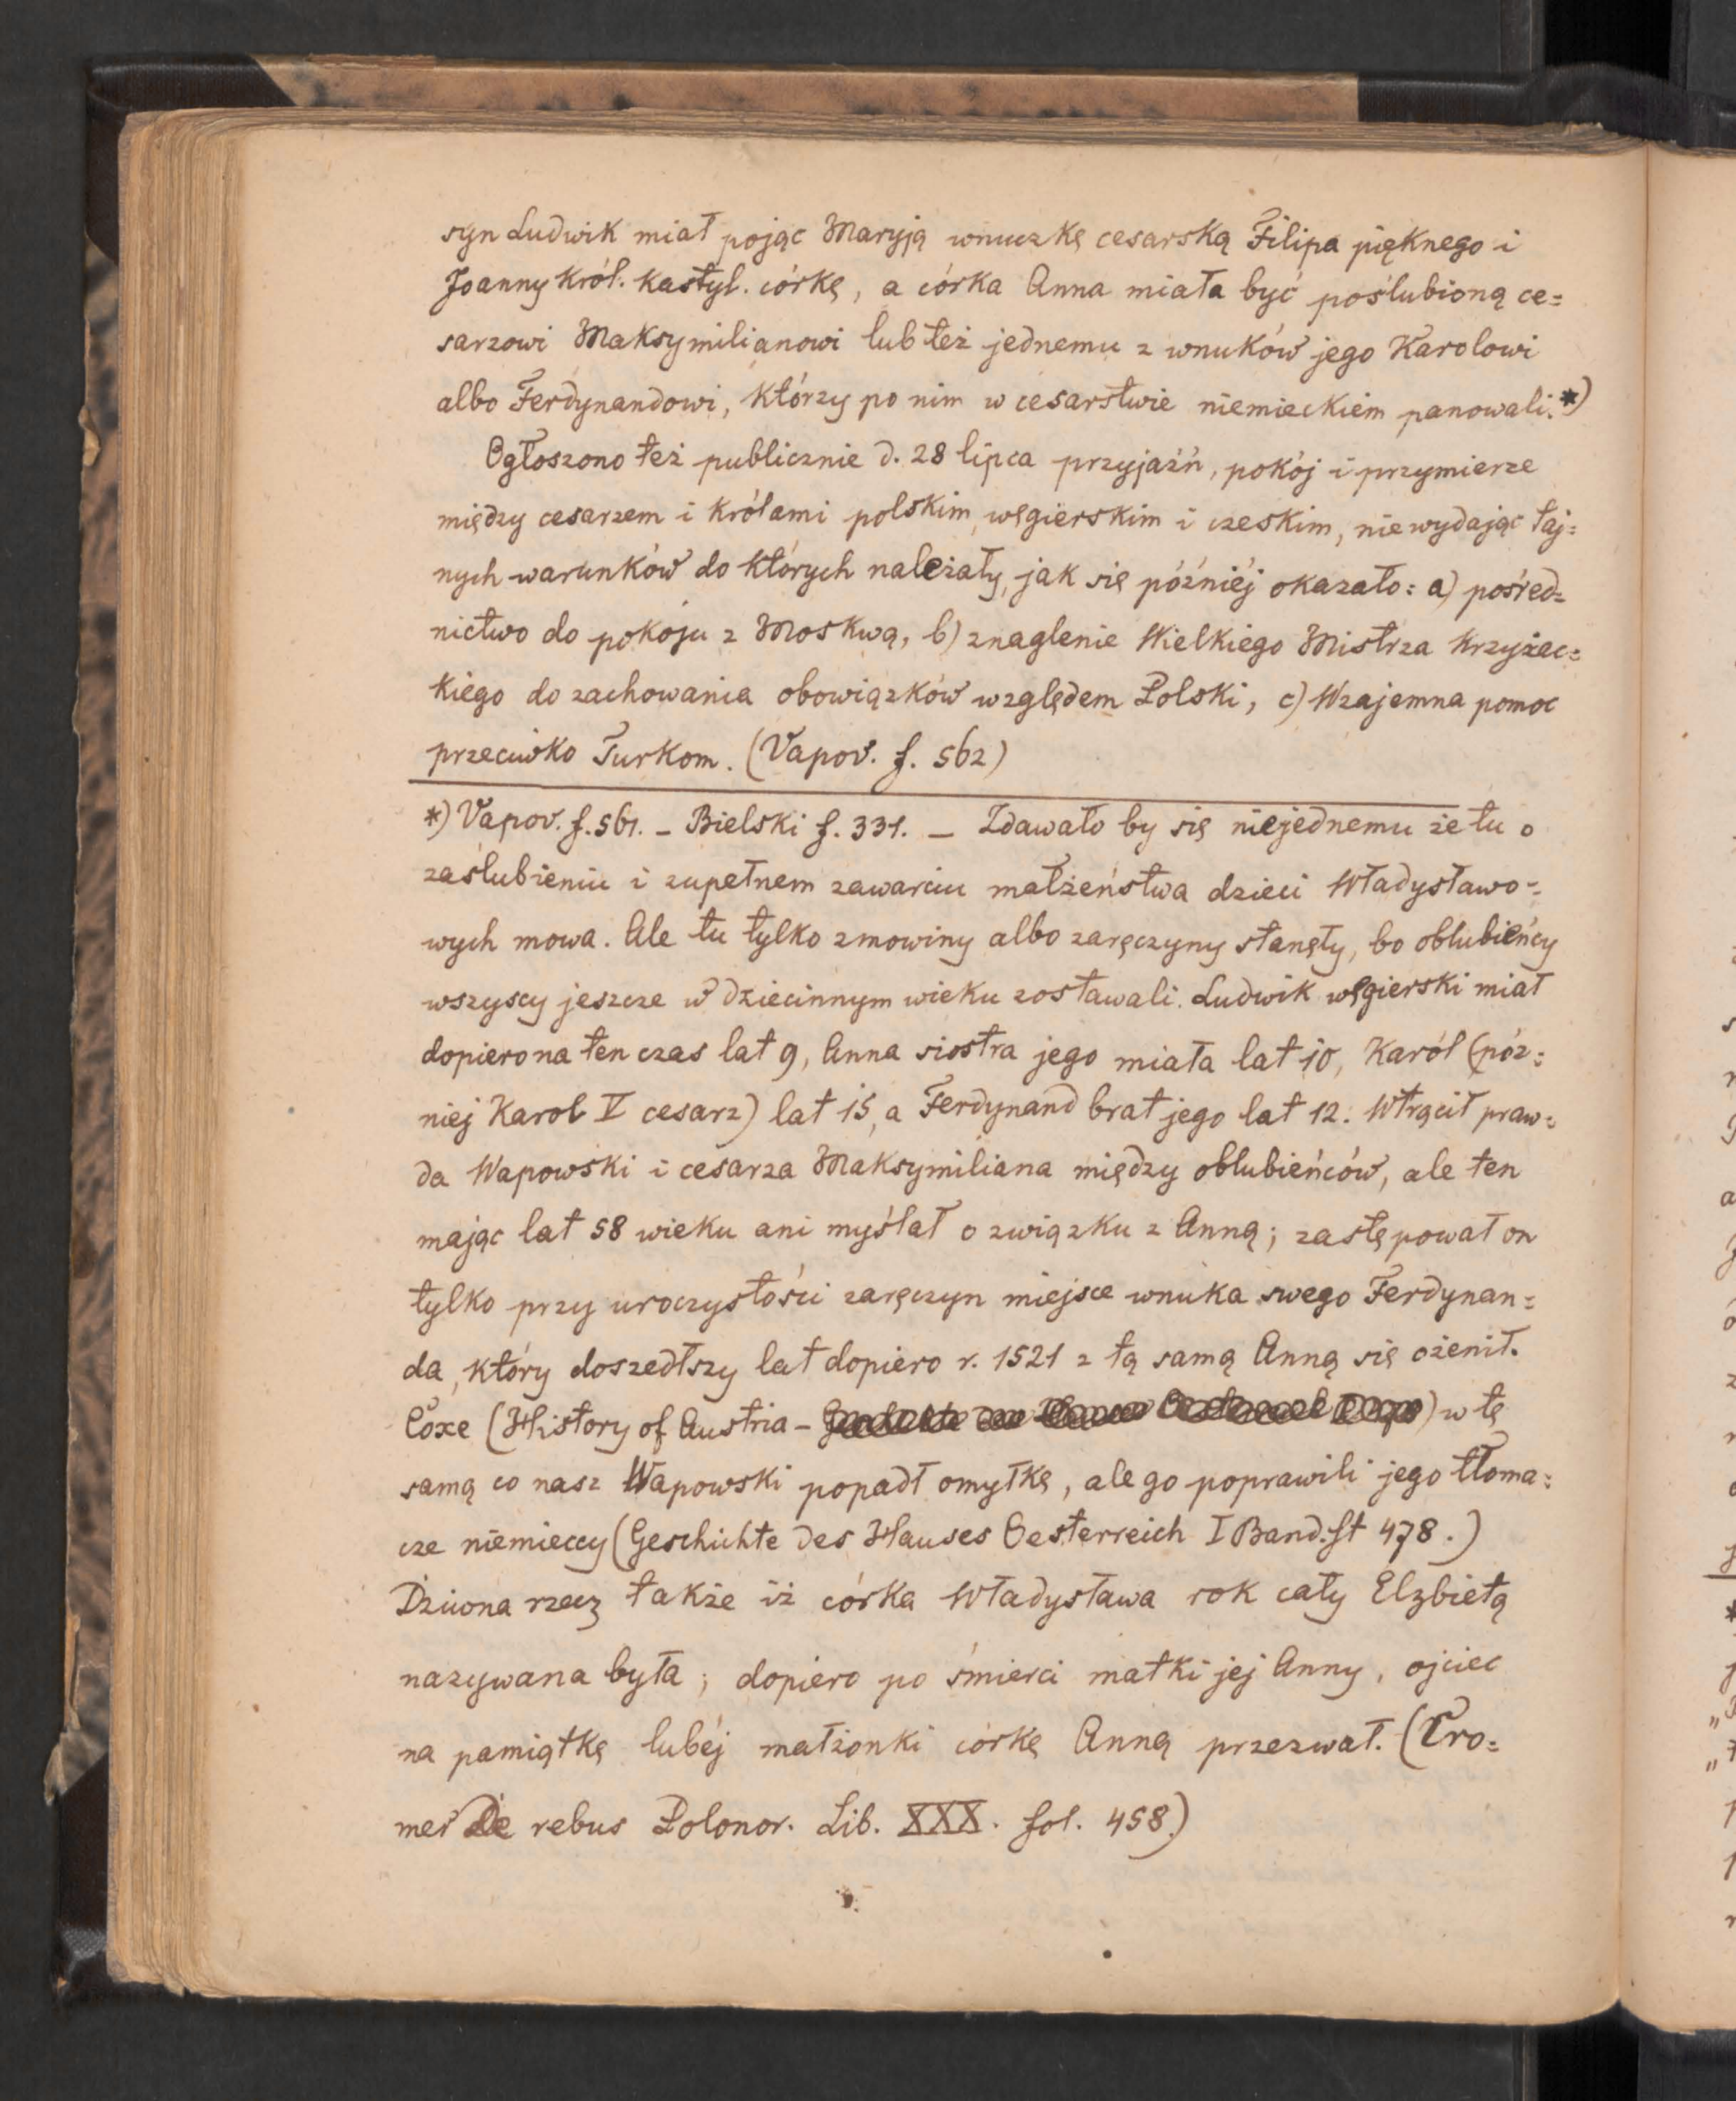 syn Ludwik miał pojąc Maryją wnuczkę cesarską Filipa pięknego i
Joanny król. kastyl. córkę, a córka Anna miała być poślubioną ce=
sarzowi Maksymilianowi lub też jednemu z wnuków jego Karolowi
albo Ferdynandowi, którzy po nim w cesarstwie niemieckiém panowali.*)
Ogłoszono też publicznie d. 28 lipca przyjaźń, pokój i przymierze
między cesarzem i królami polskim, węgierskim i czeskim, nie wydając taj=
nych warunków do których należały, jak się późniéj okazało: a) pośred=
nictwo do pokoju z Moskwą, b) znaglenie Wielkiego Mistrza krzyżac=
kiego do zachowania obowiązków względem Polski, c) Wzajemna pomoc
przeciwko Turkom. (Vapov. f. 562)
*) Vapov. f. 561. – Bielski f. 331. – Zdawało by się niejednemu że tu o
zaślubieniu i zupełnem zawarciu małżeństwa dzieci Władysławo=
wych mowa. Ale tu tylko zmowiny albo zaręczyny stanęły, bo oblubieńcy
wszyscy jeszcze w dziecinnym wieku zostawali. Ludwik węgierski miał
dopiero na ten czas lat 9, Anna siostra jego miała lat 10, Karól (póz=
niej Karol V cesarz) lat 15, a Ferdynand brat jego lat 12. Wtrącił praw=
da Wapowski i cesarza Maksymiliana między oblubieńców, ale ten
mając lat 58 wieku ani myślał o związku z Anną; zastępował on
tylko przy uroczystości zaręczyn miejsce wnuka swego Ferdynan=
da, który doszedłszy lat dopiero r. 1521 z tą samą Anną się ożenił.
Coxe (History of Austria – ) w tę
samą co nasz Wapowski popadł omyłkę, ale go poprawili jego tłoma=
cze niemieccy (Geschichte des Hauses Oesterreich I Band. St 478.)
Dziwna rzecz także iż córka Władysława rok cały Elzbietą
nazywana była; dopiero po śmierci matki jej Anny, ojciec
na pamiątkę lubéj małżonki córkę Anną przezwał. (Cro=
mer De rebus Polonor. Lib. XXX. fol. 458.)